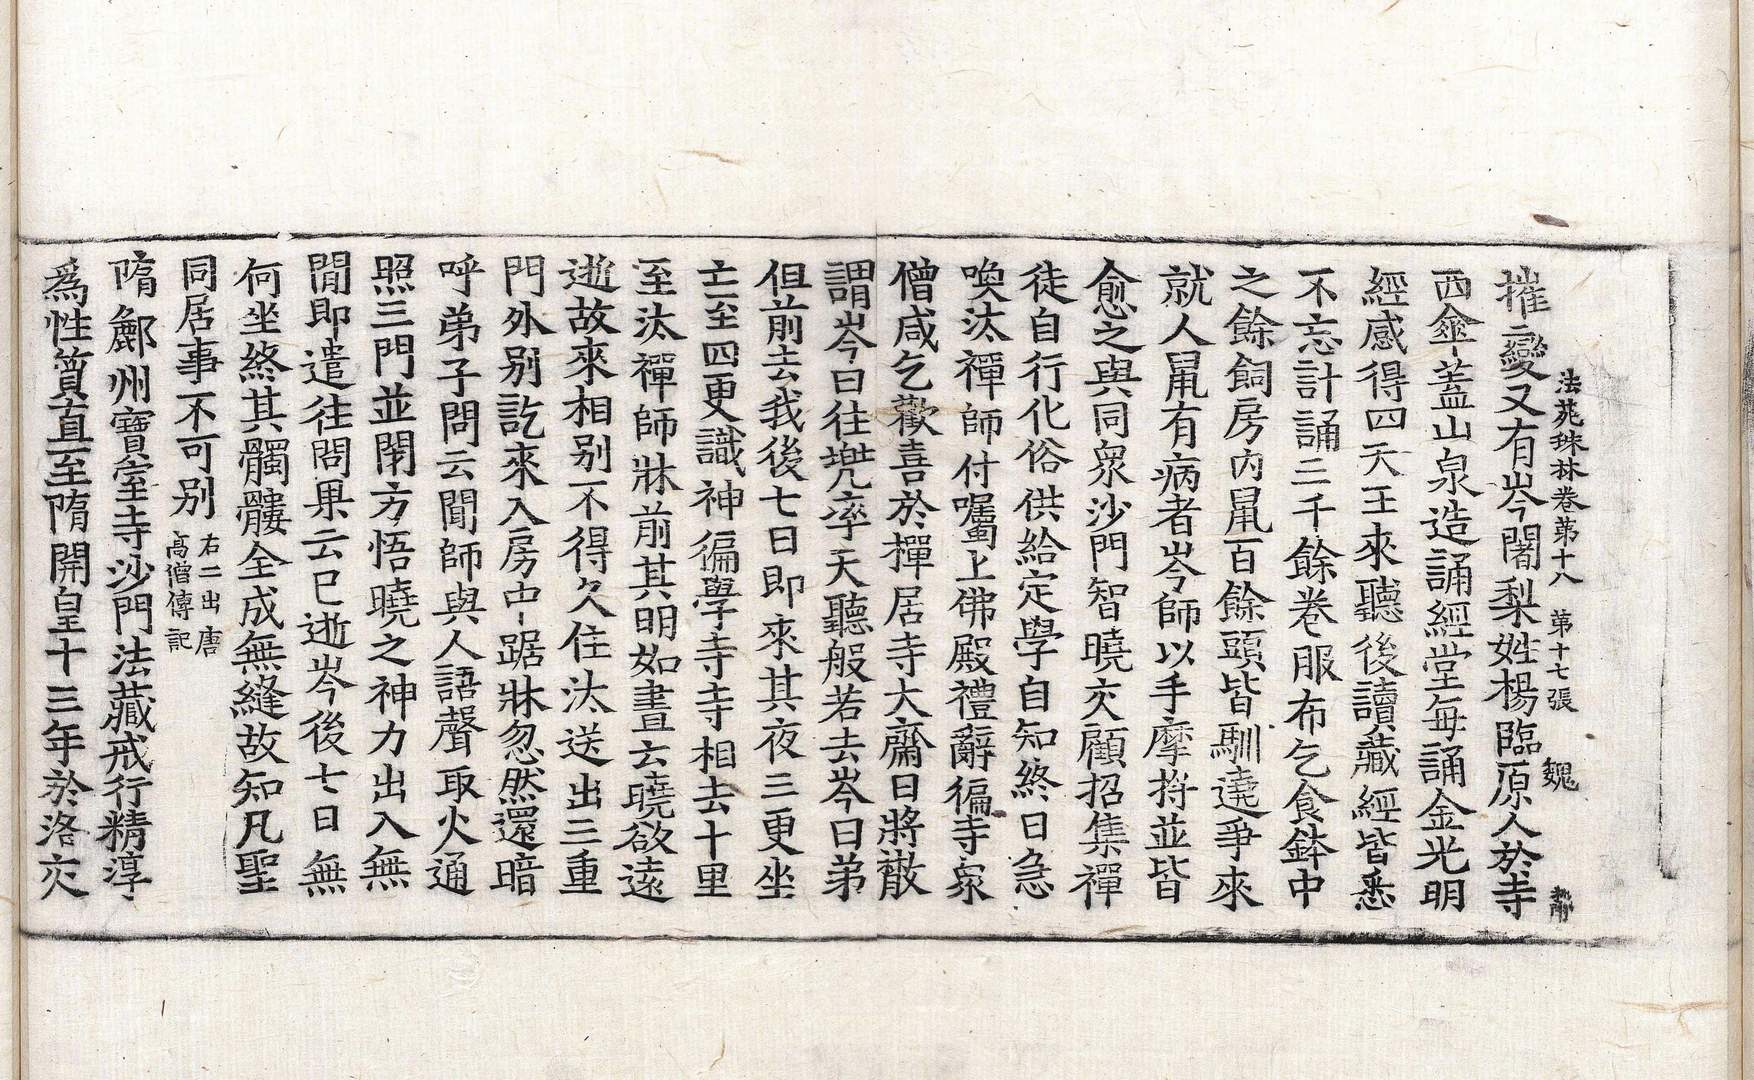 法苑珠林卷第十八　第十七張　魏
摧變又有岑闍梨姓楊臨原人於寺
西傘蓋山泉造誦經堂每誦金光明
經感得四天王來聽後讀藏經皆悉
不忘計誦三千餘卷服布乞食鉢中
之餘飼房內鼠百餘頭皆馴遶爭來
就人鼠有病者岑師以手摩捋並皆
愈之與同衆沙門智曉交顧招集禪
徒自行化俗供給定學自知終日急
喚汰禪師付囑上佛殿禮辭徧寺衆
僧咸乞歡喜於禪居寺大齋日將散
謂岑曰往兜率天聽般若去岑曰弟
但前去我後七日即來其夜三更坐
亡至四更識神徧學寺寺相去十里
至汰禪師牀前其明如晝云曉欲遠
逝故來相別不得久住汰送出三重
門外別訖來入房中踞牀忽然還暗
呼弟子問云聞師與人語聲取火通
照三門並閉方悟曉之神力出入無
閒即遣往問果云已逝岑後七日無
何坐終其髑髏全成無縫故知凡聖
同居事不可別右二出唐高僧傳記
隋鄜州寶室寺沙門法藏戒行精淳
爲性質直至隋開皇十三年於洛交